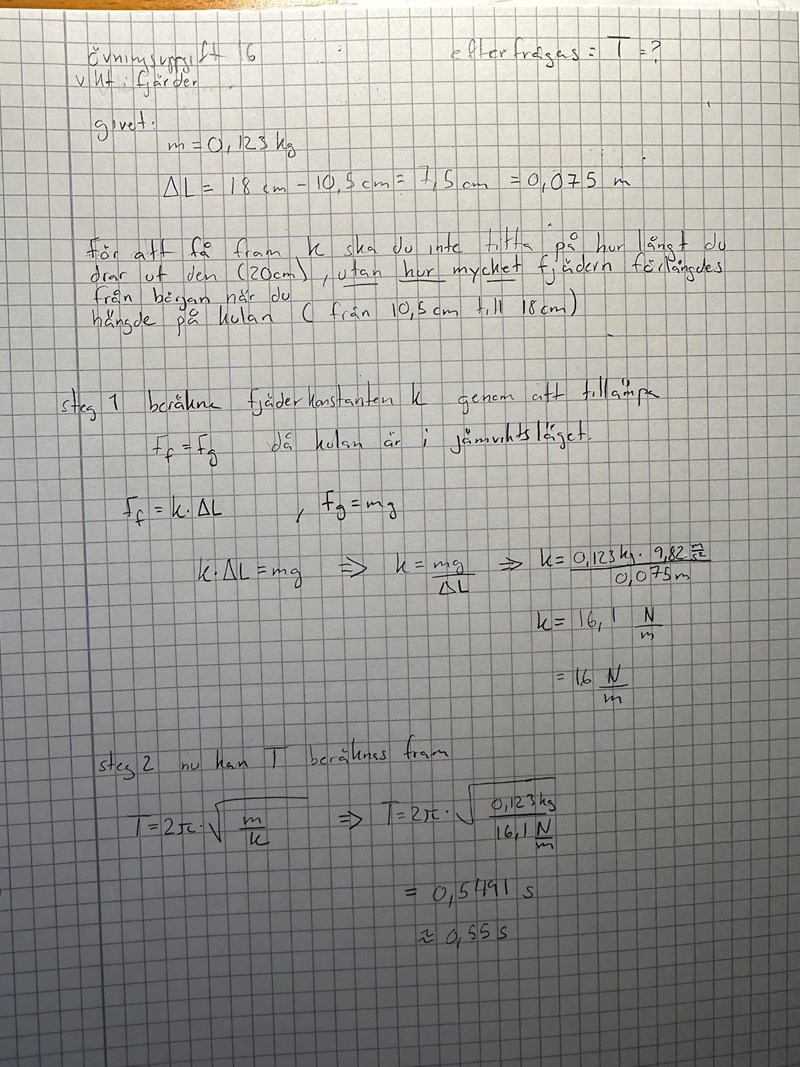 övningsuppgift 16
efterfrågas = T = ?
vikt i fjäder
givet:
m = 0,123 kg
ΔL = 18 cm - 10,5 cm = 7,5 cm = 0,075 m
för att få fram k ska du inte titta på hur långt du
drar ut den (20cm), utan hur mycket fjädern förlängdes
från början när du
hängde på kulan ( från 10,5 cm till 18 cm)
steg 1 beräkne fjäderkonstanten k genom att tillämpa
F_f = F_g då kulan är i jämviktsläget.
F_f = k · ΔL , F_g = mg
k · ΔL = mg ⇒ k = mg/ΔL ⇒ k = 0,123 kg · 9,82 m/s² / 0,075 m
k = 16,1 N/m
= 16 N/m
steg 2 nu kan T beräknas fram
T = 2π · √(m/k) ⇒ T = 2π · √(0,123 kg / 16,1 N/m)
= 0,5491 s
≈ 0,55 s